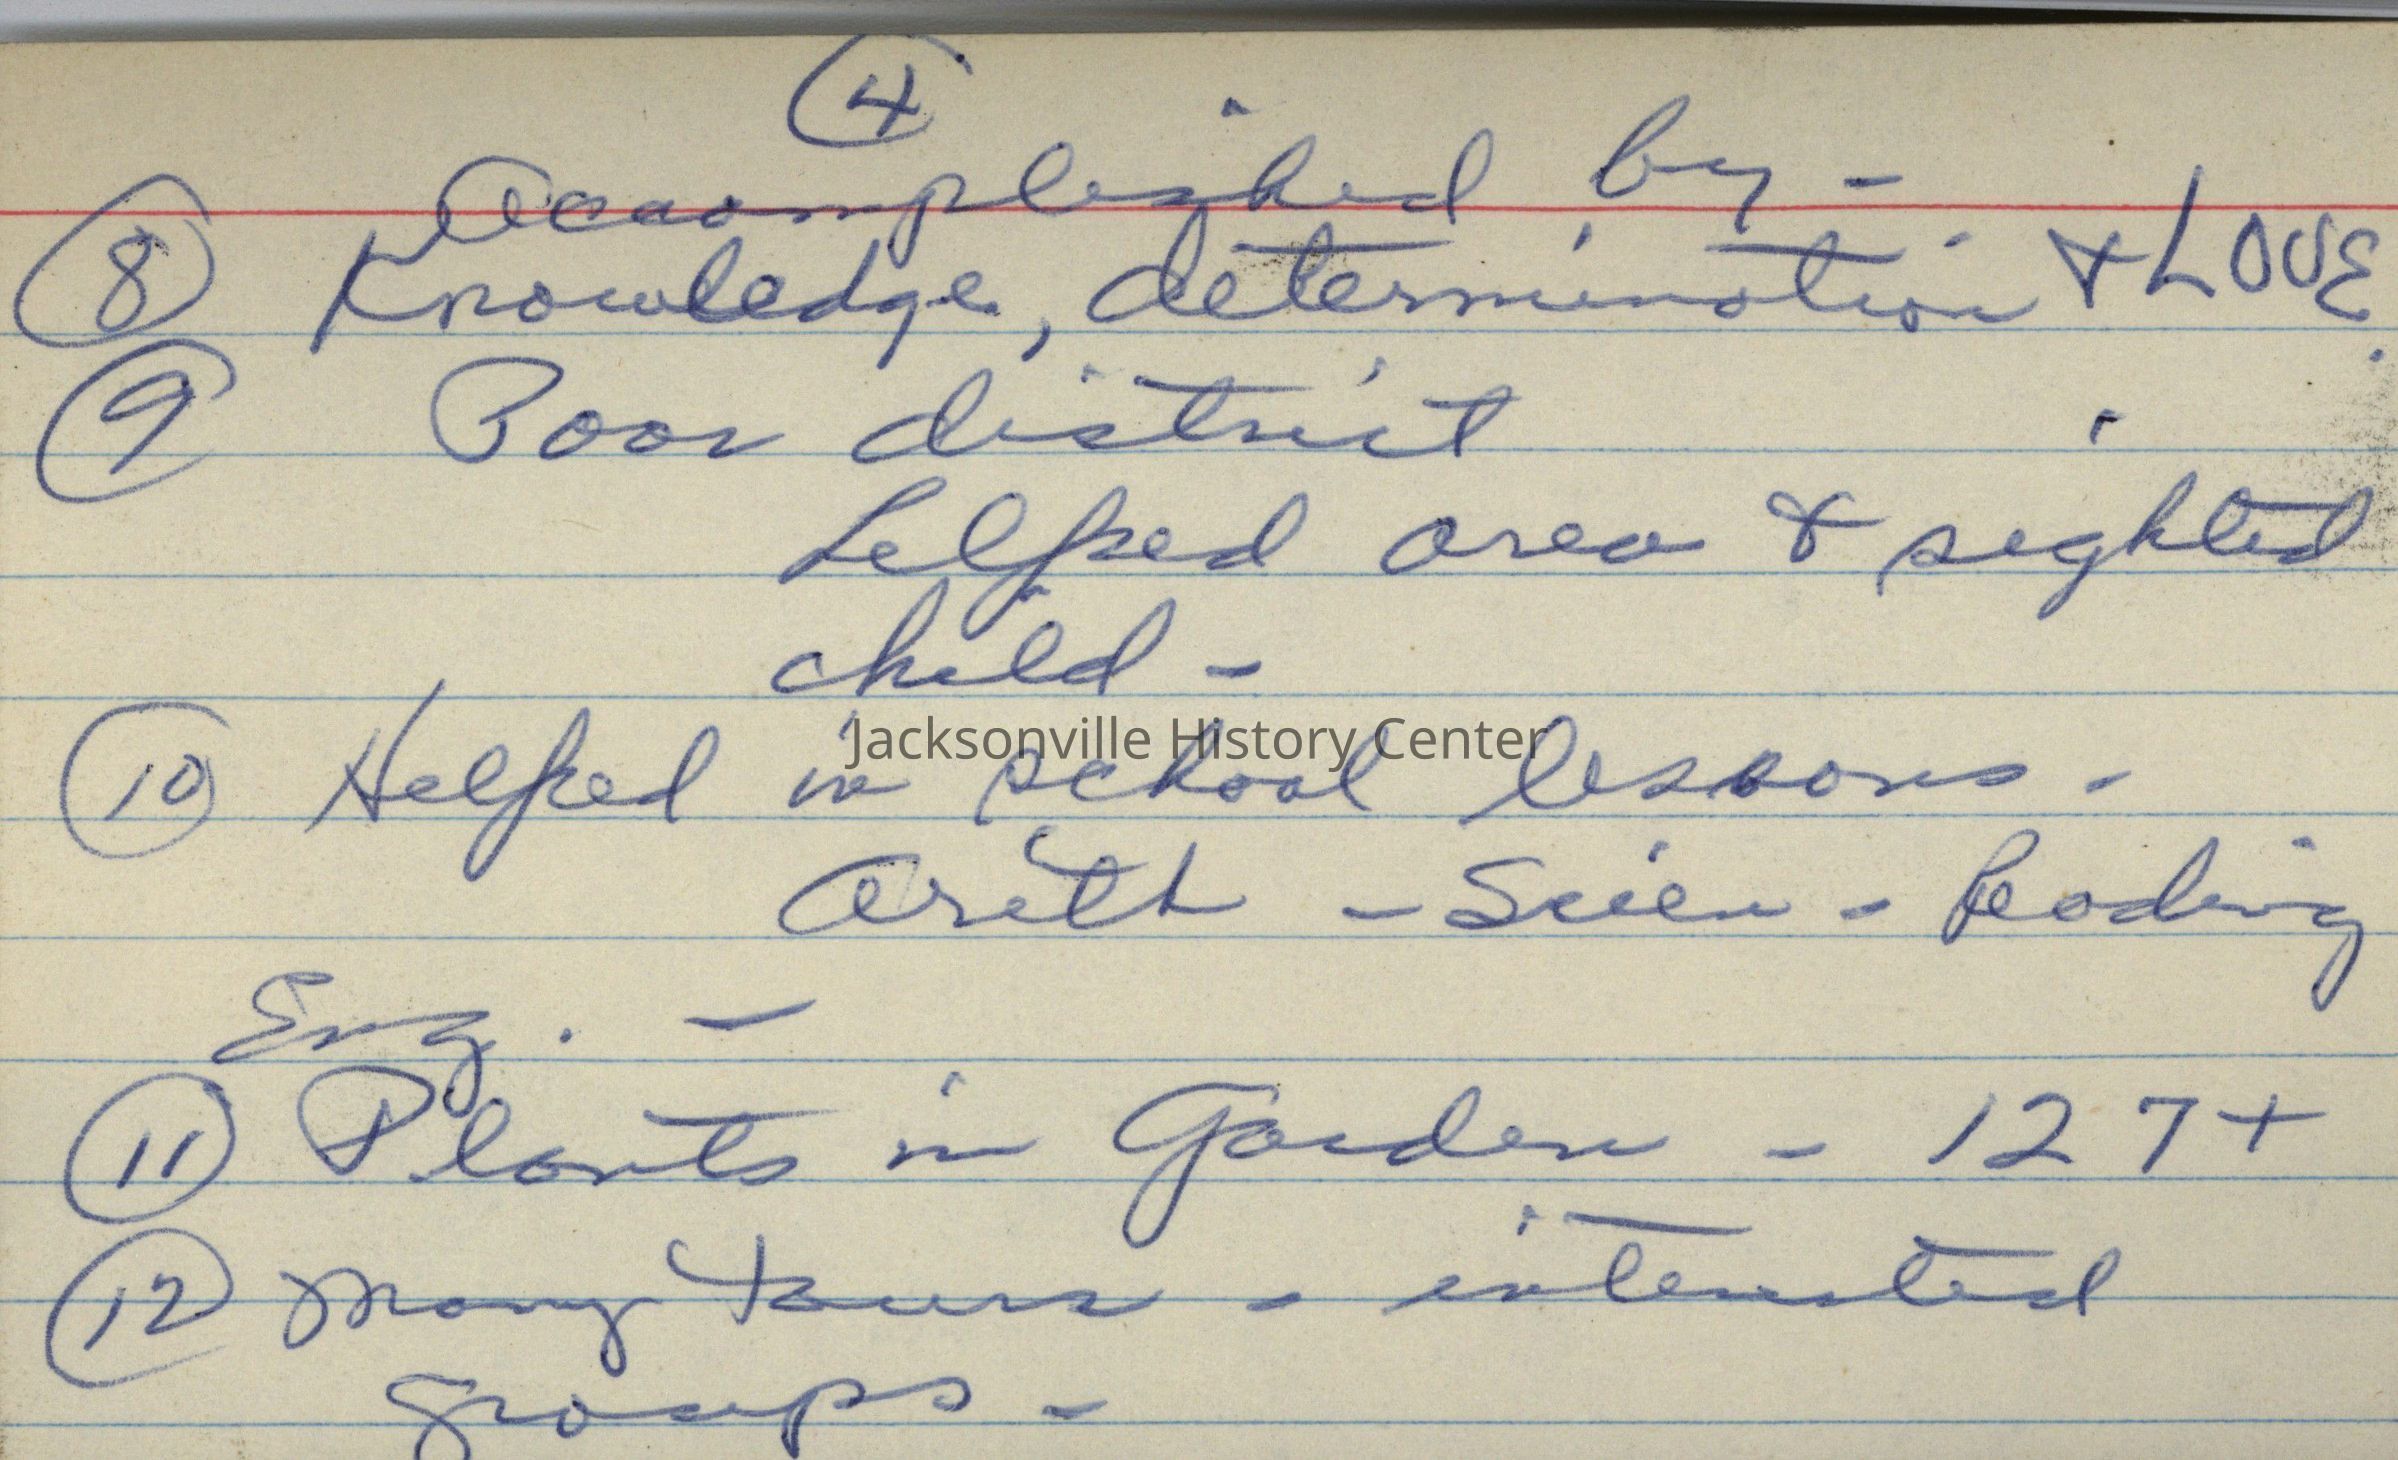 4
Accomplished by -
8 Knowledge, determination & LOVE.
9 Poor district
helped area & sighted
child -
10 Helped in school lessons -
Jacksonville History Center
Arith - Scien - Reading
Eng. -
11 Plants in Garden - 127+
12 Many tours - interested
groups -